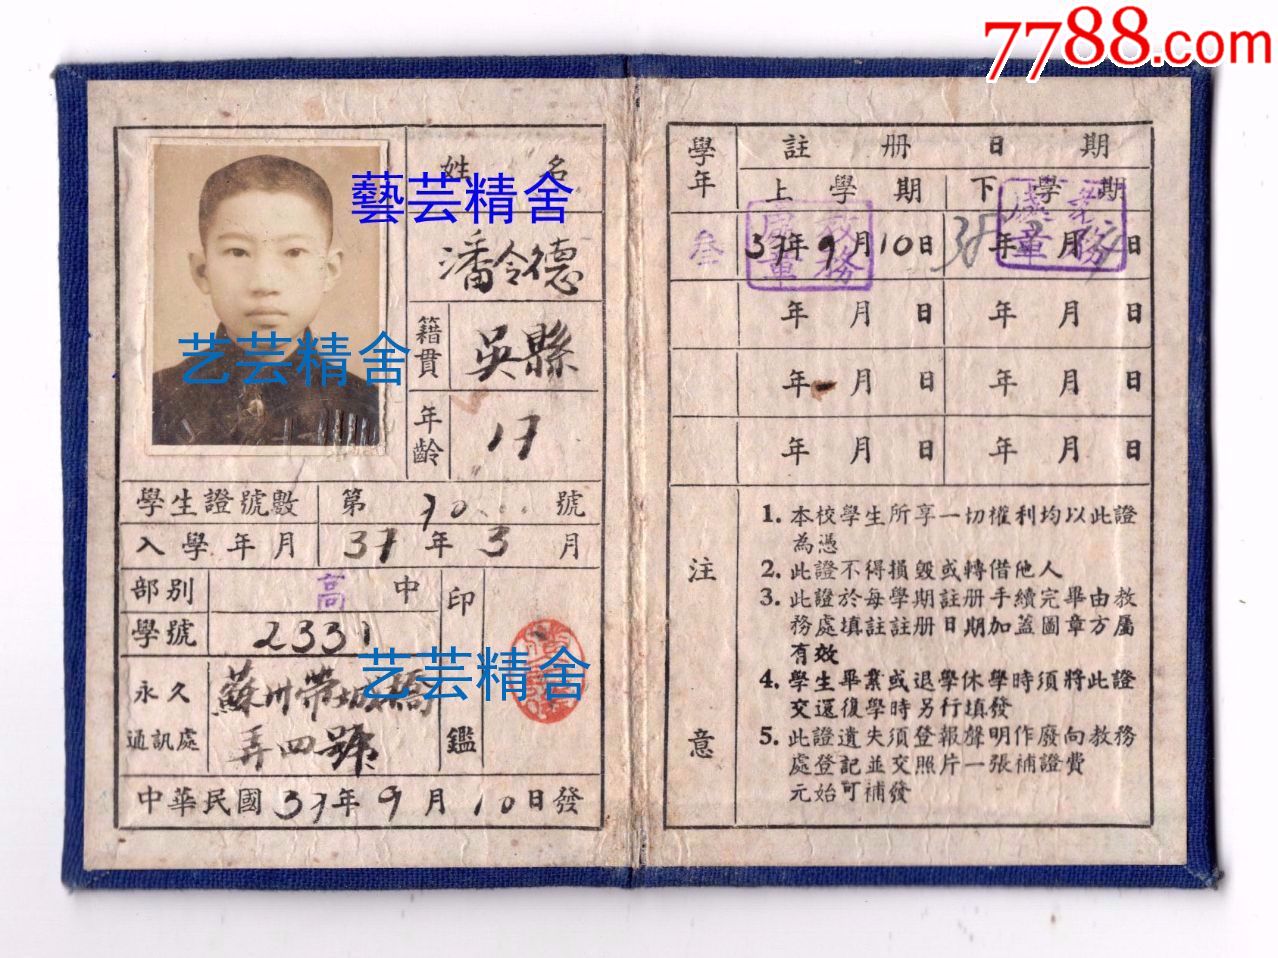 7788.com
姓 名
藝芸精舍
潘令德
艺芸精舍
籍貫 吳縣
年齡 17
學生證號數 第 70 號
入學年月 37年3月
部別 高中
學號 2331
印鑑
艺芸精舍
永久通訊處 蘇州帶城橋
弄四號
中華民國37年9月10日發
學年 註冊日期
上學期 下學期
叁 37年9月10日 38年 月 日
教務處章 教務處章
年 月 日 年 月 日
年 月 日 年 月 日
年 月 日 年 月 日
注意
1. 本校學生所享一切權利均以此證
為憑
2. 此證不得損毀或轉借他人
3. 此證於每學期註册手續完畢由教
務處填註註册日期加蓋圖章方屬
有效
4. 學生畢業或退學休學時須將此證
交還復學時另行填發
5. 此證遺失須登報聲明作廢向教務
處登記並交照片一張補證費
元始可補發